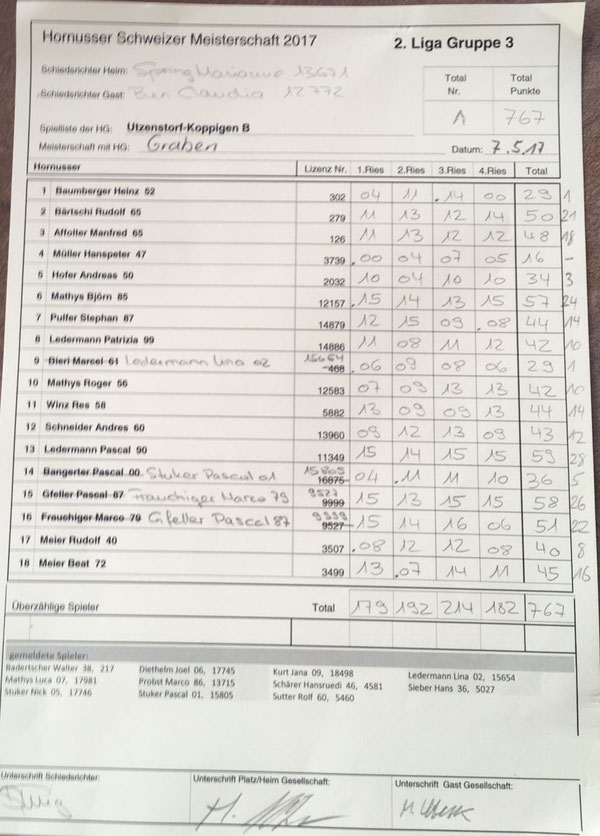 Hornusser Schweizer Meisterschaft 2017 2. Liga Gruppe 3
Schiedsrichter Heim: Marianne 13671
Schiedsrichter Gast: Claudia 12772
Total Nr. Total Punkte
1 767
Spielliste der HG: Utzenstorf-Koppigen B
Meisterschaft mit HG: Graben Datum: 7.5.17
Hornusser Lizenz Nr. 1.Ries 2.Ries 3.Ries 4.Ries Total
1 Baumberger Heinz 52 302 04 11 .14 00 29 1
2 Bärtschi Rudolf 65 279 11 13 12 14 50 21
3 Affolter Manfred 65 126 11 13 12 12 48 18
4 Müller Hanspeter 47 3739 .00 04 07 05 16 -
5 Hofer Andreas 50 2032 10 04 10 10 34 3
6 Mathys Björn 85 12157 .15 14 13 15 57 24
7 Pulfer Stephan 87 14879 12 15 09 .08 44 14
8 Ledermann Patrizia 99 14886 11 08 11 12 42 10
9 Bieri Marcel 61 Ledermann Lina 02 15654 468 .06 09 08 06 29 1
10 Mathys Roger 56 12583 07 09 13 13 42 10
11 Winz Res 58 5882 13 09 09 13 44 14
12 Schneider Andres 60 13960 09 12 13 09 43 12
13 Ledermann Pascal 90 11349 15 14 15 15 59 28
14 Bangerter Pascal 00 Stuker Pascal 01 15805 16875 04 .11 11 10 36 5
15 Gfeller Pascal 87 Frauchiger Marco 79 9527 9999 15 13 15 15 58 26
16 Frauchiger Marco 79 Gfeller Pascal 87 9999 9527 15 14 16 06 51 22
17 Meier Rudolf 40 3507 .08 12 12 08 40 8
18 Meier Beat 72 3499 13 .07 14 11 45 16
Überzählige Spieler Total 179 192 214 182 767
gemeldete Spieler:
Biedertscher Walter 38, 217 Diethelm Joel 06, 17745 Kurt Jana 09, 18498 Ledermann Lina 02, 15654
Mathys Luca 07, 17981 Probst Marco 86, 13715 Schärer Hansruedi 46, 4581 Sieber Hans 36, 5027
Stuker Nick 05, 17746 Stuker Pascal 01, 15805 Sutter Rolf 60, 5460
Unterschrift Schiedsrichter: Unterschrift Platz/Heim Gesellschaft: Unterschrift Gast Gesellschaft: